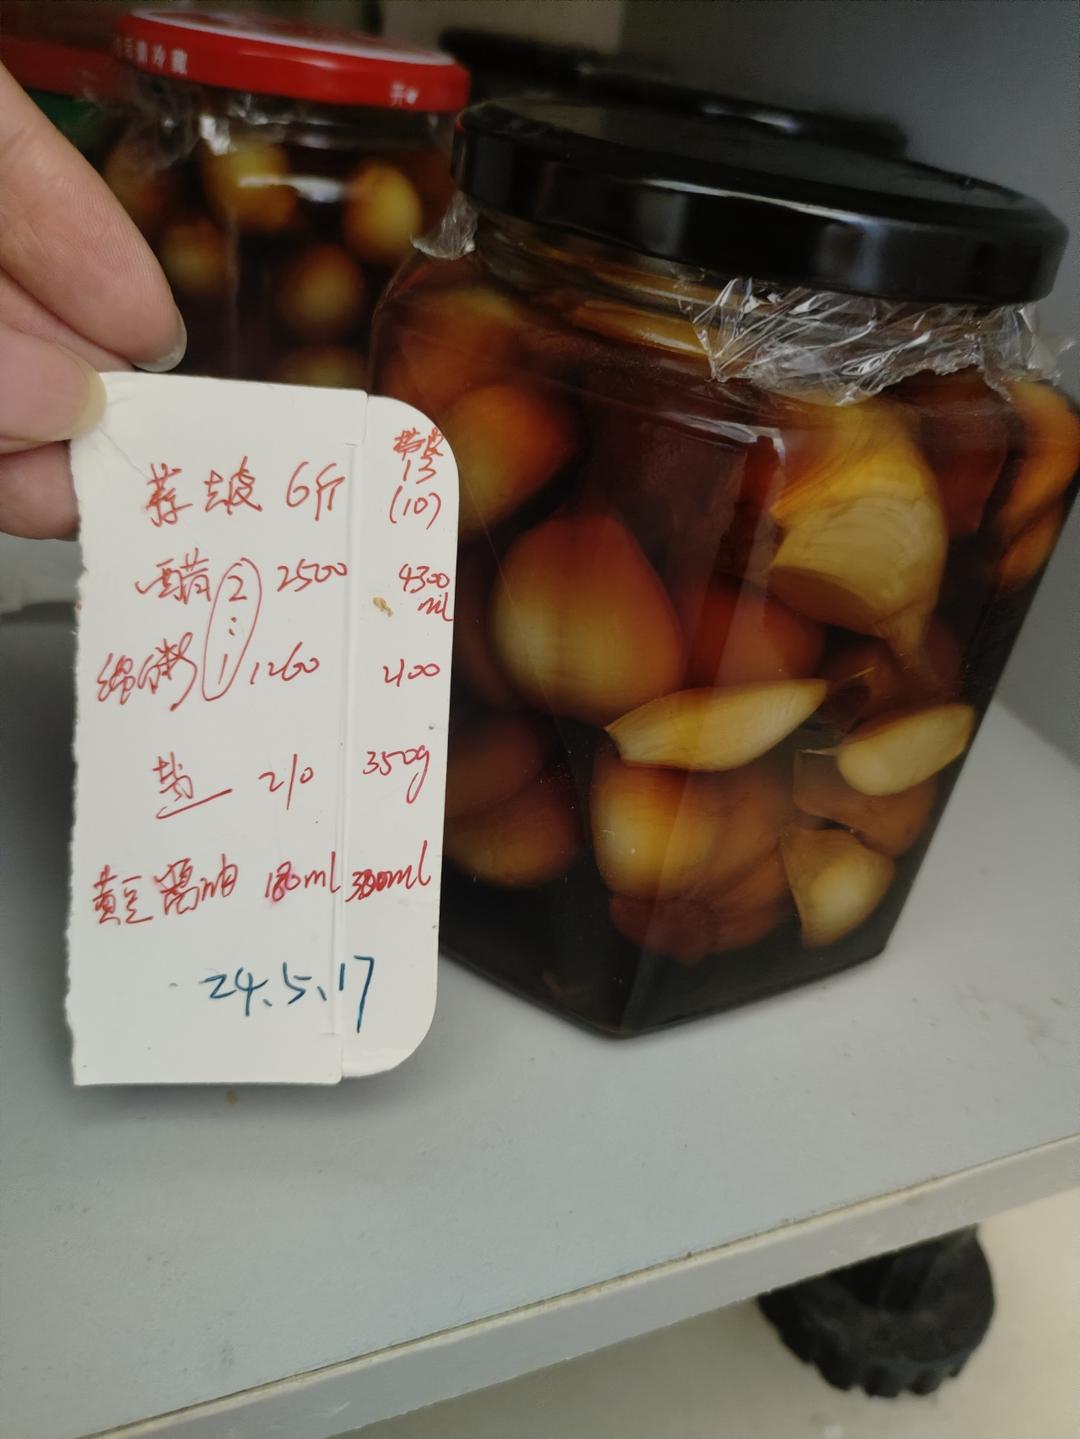 冷藏
开
蒜去皮 6斤 带皮 13 (10)
醋 2 2500 4300 ml
:
绵白糖 1 1260 2100
盐 210 350g
黄豆酱油 180ml 380ml
24.5.17